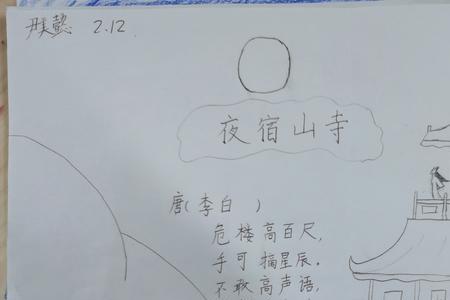 2.12
夜宿山寺
唐(李白 )
危楼高百尺,
手可摘星辰。
不敢高声语,